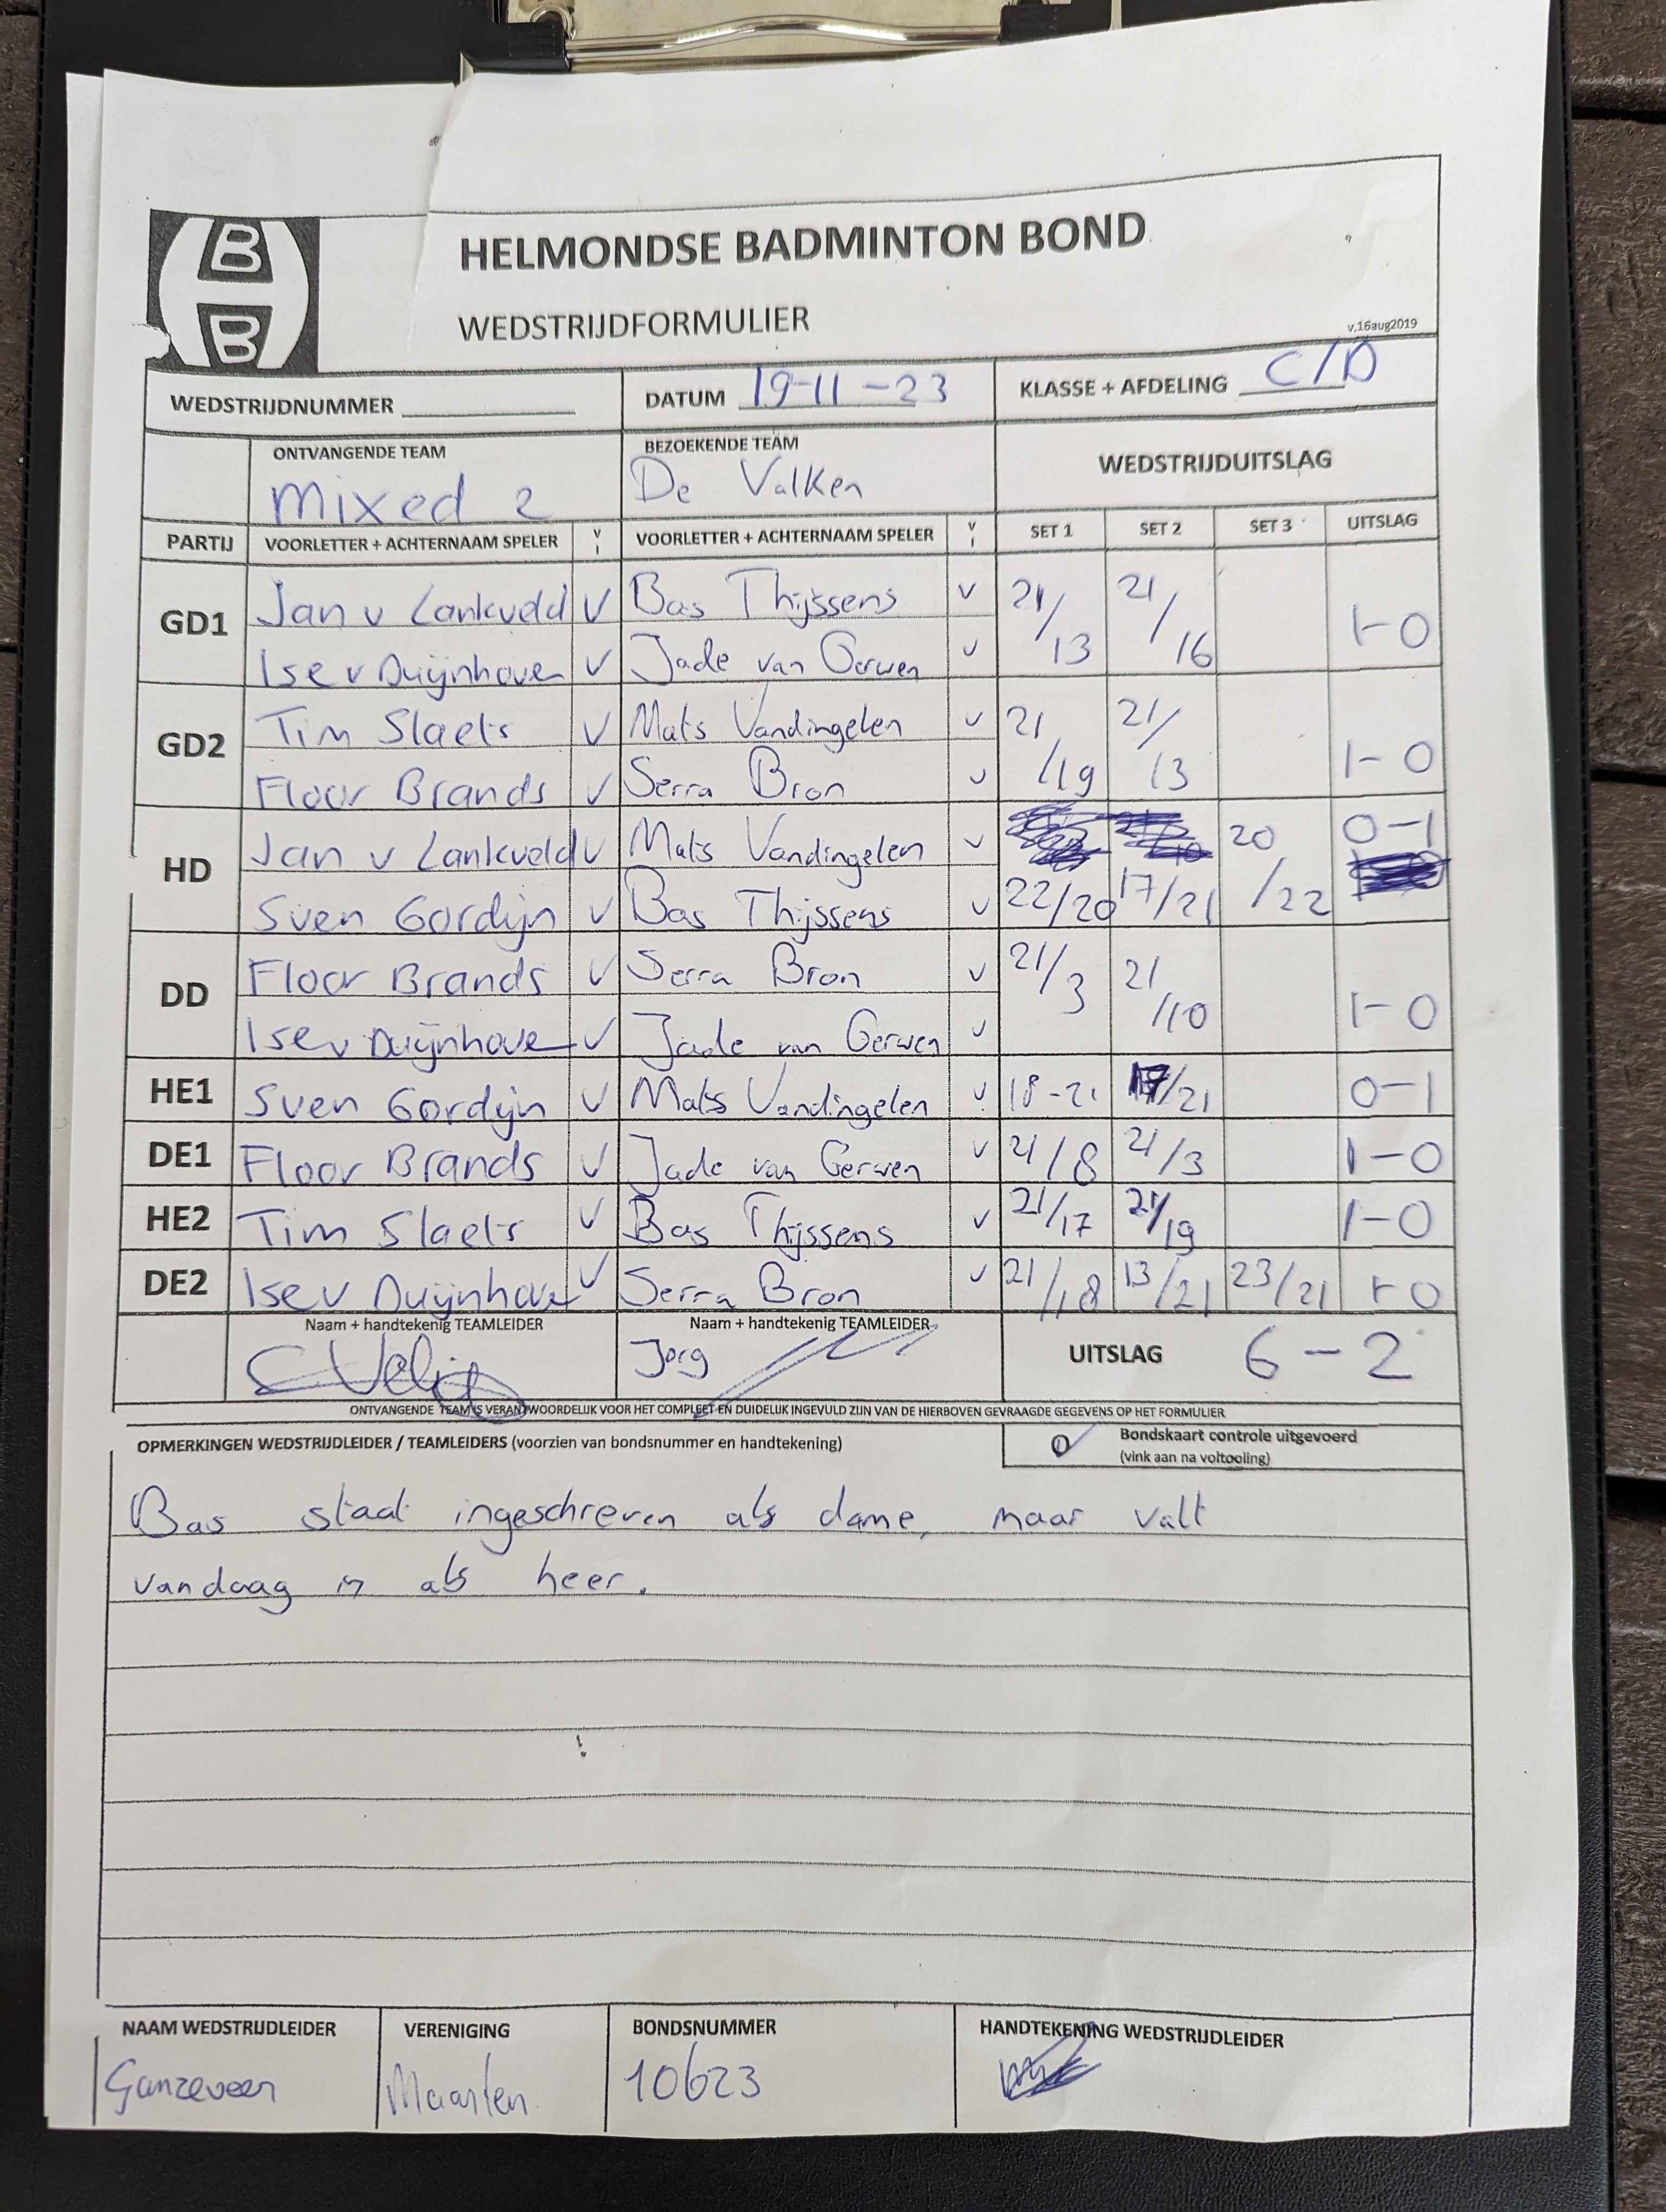 HELMONDSE BADMINTON BOND
WEDSTRIJDFORMULIER
v.16aug2019
WEDSTRIJDNUMMER DATUM 19-11-23 KLASSE + AFDELING C/D
ONTVANGENDE TEAM BEZOEKENDE TEAM WEDSTRIJDUITSLAG
Mixed 2 De Valken
PARTIJ VOORLETTER + ACHTERNAAM SPELER V I VOORLETTER + ACHTERNAAM SPELER V I SET 1 SET 2 SET 3 UITSLAG
GD1 Jan v Lankveld V Bas Thijssens V 21/13 21/16 1-0
Ise v Duijnhoven V Jade van Gerwen V
GD2 Tim Slaets V Mats Vandingelen V 21/19 21/13 1-0
Floor Brands V Serra Bron V
HD Jan v Lankveld V Mats Vandingelen V 20/22 0-1
Sven Gordijn V Bas Thijssens V 22/20 17/21
DD Floor Brands V Serra Bron V 21/3 21/10 1-0
Ise v Duijnhove V Jade van Gerwen V
HE1 Sven Gordijn V Mats Vandingelen V 18-21 17/21 0-1
DE1 Floor Brands V Jade van Gerwen V 21/8 21/3 1-0
HE2 Tim Slaets V Bas Thijssens V 21/17 21/19 1-0
DE2 Ise v Duijnhoven V Serra Bron V 21/18 13/21 23/21 1-0
Naam + handtekenig TEAMLEIDER Naam + handtekenig TEAMLEIDER
Jorg UITSLAG 6-2
ONTVANGENDE TEAM IS VERANTWOORDELIJK VOOR HET COMPLEET EN DUIDELIJK INGEVULD ZIJN VAN DE HIERBOVEN GEVRAAGDE GEGEVENS OP HET FORMULIER
OPMERKINGEN WEDSTRIJDLEIDER / TEAMLEIDERS (voorzien van bondsnummer en handtekening) Bondskaart controle uitgevoerd
(vink aan na voltooiing)
Bas staat ingeschreven als dame, maar valt
vandaag in als heer.
NAAM WEDSTRIJDLEIDER VERENIGING BONDSNUMMER HANDTEKENING WEDSTRIJDLEIDER
Ganzeveer Maarten 10623